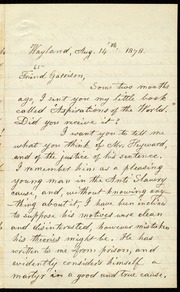 Wayland, Aug. 14th 1878.
Friend Garrison,
Some two months
ago, I sent you my little book
called "Aspirations of the World."
Did you receive it?
I want you to tell me
what you think of Mr. Heywood,
and of the justice of his sentence.
I remember him as a pleasing
young man in the Anti Slavery
cause, and, without knowing any-
thing about it, I have been inclined
to suppose his motives were clean
and disinterested, however mistaken
his theories might be. He has
written to me from prison, and
evidently considers himself a
martyr in a good and true cause,